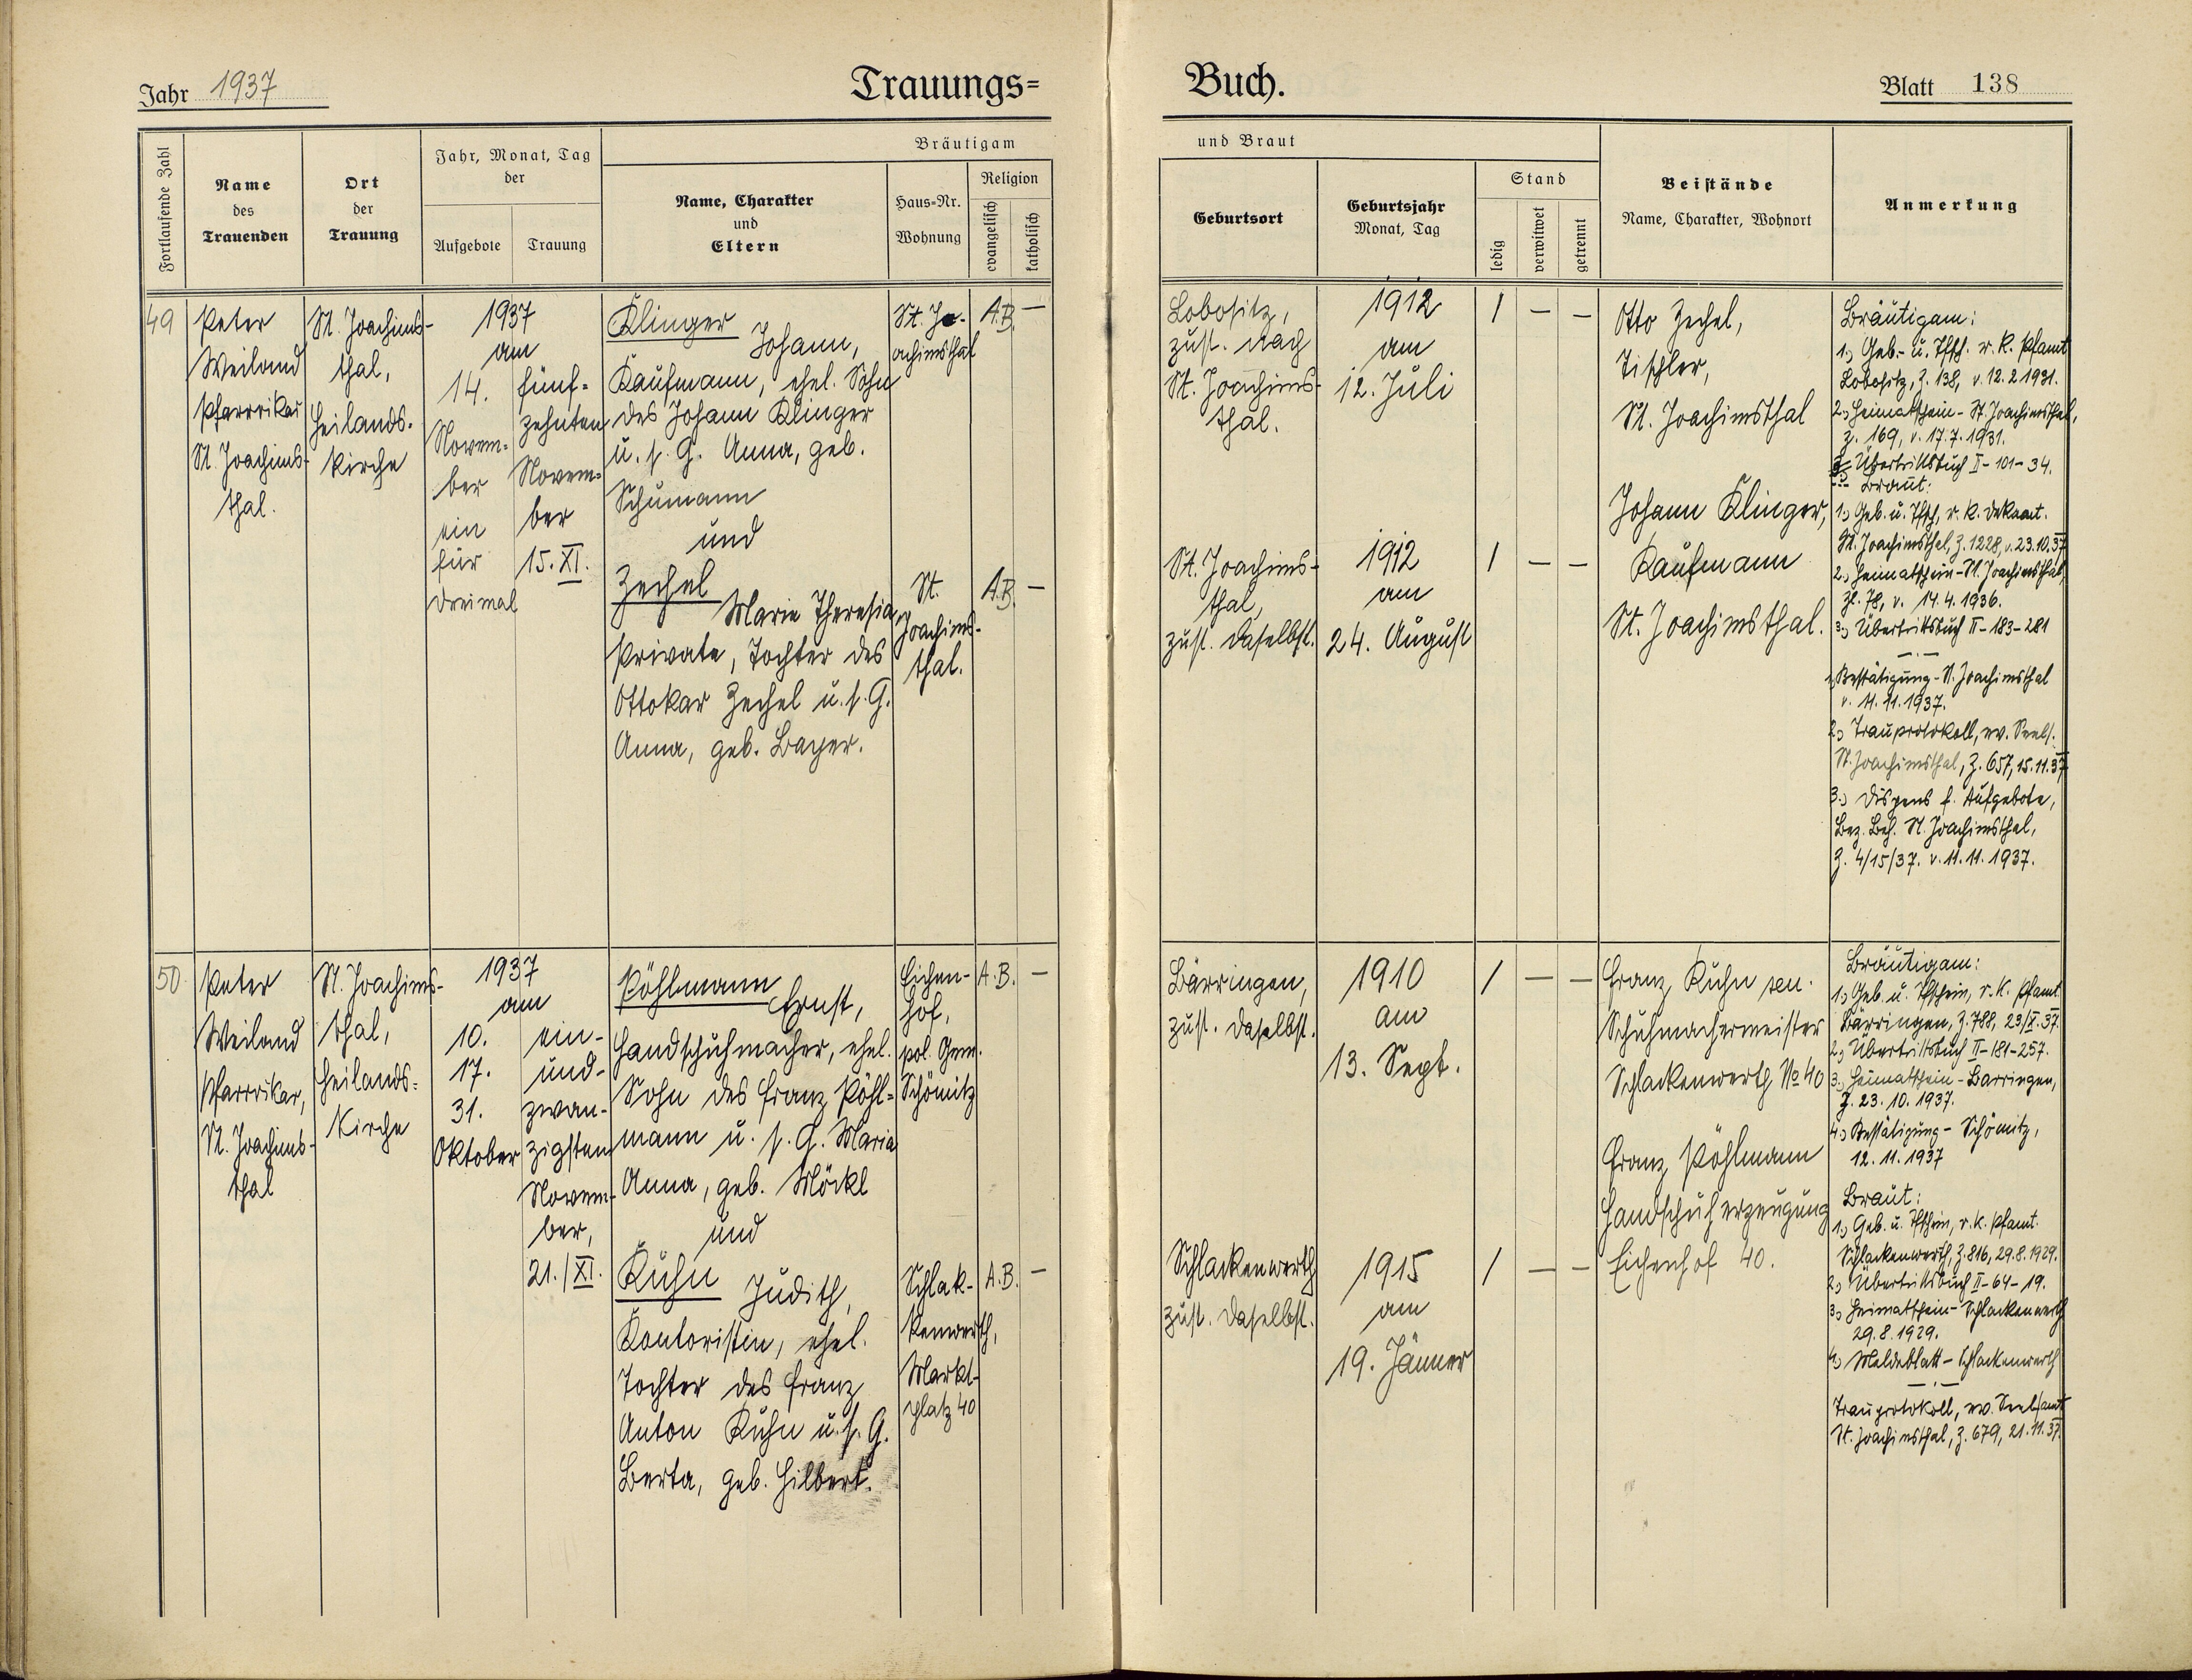 Jahr 1937
Trauungs=
Buch.
Blatt 138
Fortlaufende Zahl
Name
des
Trauenden
Ort
der
Trauung
Jahr, Monat, Tag
der
Aufgebote
Trauung
Bräutigam
Name, Charakter
und
Eltern
Haus-Nr.
Wohnung
Religion
evangelisch
katholisch
und Braut
Geburtsort
Geburtsjahr
Monat, Tag
Stand
ledig
verwitwet
getrennt
Beistände
Name, Charakter, Wohnort
Anmerkung
49
Peter
Weiland
Pfarrvikar
St. Joachims-
thal.
St. Joachims-
thal,
Heilands-
kirche
1937
am
14.
Novem-
ber
ein
für
dreimal
fünf-
zehnten
Novem-
ber
15. XI.
Klinger
Johann,
Kaufmann, ehel. Sohn
des Johann Klinger
u. s. G. Anna, geb.
Schumann
und
Zechel
Marie Theresia,
Private, Tochter des
Ottokar Zechel u. s. G.
Anna, geb. Bayer.
St. Jo-
achimsthal
A.B. —
St.
Joachims-
thal.
A.B. —
Lobositz,
zust. nach
St. Joachims-
thal.
1912
am
12. Juli
1 — —
St. Joachims-
thal,
zust. daselbst.
1912
am
24. August
1 — —
Otto Zechel,
Tischler,
St. Joachimsthal
Johann Klinger,
Kaufmann
St. Joachimsthal.
Bräutigam:
1.) Geb.- u. Tfsch. r. k. Pfamt
Lobositz, Z. 138, v. 12.2.1931.
2.) Heimatschein - St. Joachimsthal,
Z. 169, v. 17.7.1931.
Übertrittsbuch II - 101 - 34.
Braut:
1.) Geb. u. Tfsch, r. k. Dekanat.
St. Joachimsthal, Z. 1228, v. 23.10.37
2.) Heimatschein - St. Joachimsthal,
Zl. 78, v. 14.4.1936.
3.) Übertrittsbuch II - 183 - 281
— . —
1.) Bestätigung - St. Joachimsthal
v. 11.11.1937.
2.) Trauprotokoll, ev. Seels.
St. Joachimsthal, Z. 657, 15.11.37
3.) Dispens f. Aufgebote,
Bez. Beh. St. Joachimsthal,
Z. 4/15/37. v. 11.11.1937.
50
Peter
Weiland
Pfarrvikar,
St. Joachims-
thal
St. Joachims-
thal,
Heilands-
kirche
1937
am
10.
17.
31.
Oktober
ein-
und-
zwan-
zigsten
Novem-
ber,
21./XI.
Pöhlmann
Ernst,
Handschuhmacher, ehel.
Sohn des Franz Pöhl-
mann u. s. G. Maria
Anna, geb. Möckl
und
Kuhn
Judith,
Kontoristin, ehel.
Tochter des Franz
Anton Kuhn u. s. G.
Berta, geb. Hilbert.
Eichen-
hof,
pol. Gem.
Schömitz
A.B. —
Schlak-
kenwerth,
Markt-
platz 40
A.B. —
Bärringen,
zust. daselbst.
1910
am
13. Sept.
1 — —
Schlackenwerth
zust. daselbst.
1915
am
19. Jänner
1 — —
Franz Kuhn sen.
Schuhmachermeister
Schlackenwerth No 40
Franz Pöhlmann
Handschuherzeugung
Eichenhof 40.
Bräutigam:
1.) Geb. u. Tfschein, r. k. Pfamt.
Bärringen, Z. 788, 23/X.37.
2.) Übertrittsbuch II - 181 - 257.
3.) Heimatschein - Barringen,
Z. 23.10.1937.
4.) Bestätigung - Schömitz,
12.11.1937
Braut:
1.) Geb. u. Tfschein, r. k. Pfamt.
Schlackenwerth, Z. 816, 29.8.1929.
2.) Übertrittsbuch II - 64 - 19.
3.) Heimatschein - Schlackenwerth
29.8.1929.
4.) Meldeblatt - Schlackenwerth
— . —
Trauprotokoll, ev. Seelsamt
St. Joachimsthal, Z. 679, 21.11.37.